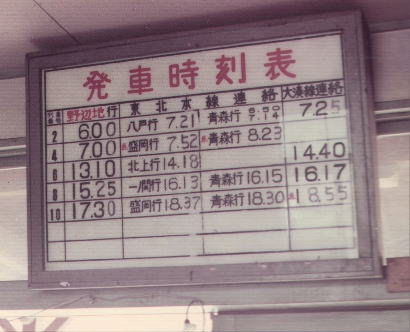 発車時刻表
野辺地行 東北本線連絡 大湊線連絡
2 6.00 八戸行 7.21 青森行 6.50 7.14 7.25
4 7.00 盛岡行 7.52 青森行 8.23
6 13.10 北上行 14.18 14.40
8 15.25 一関行 16.13 青森行 16.15 16.17
10 17.30 盛岡行 18.37 青森行 18.30 18.55